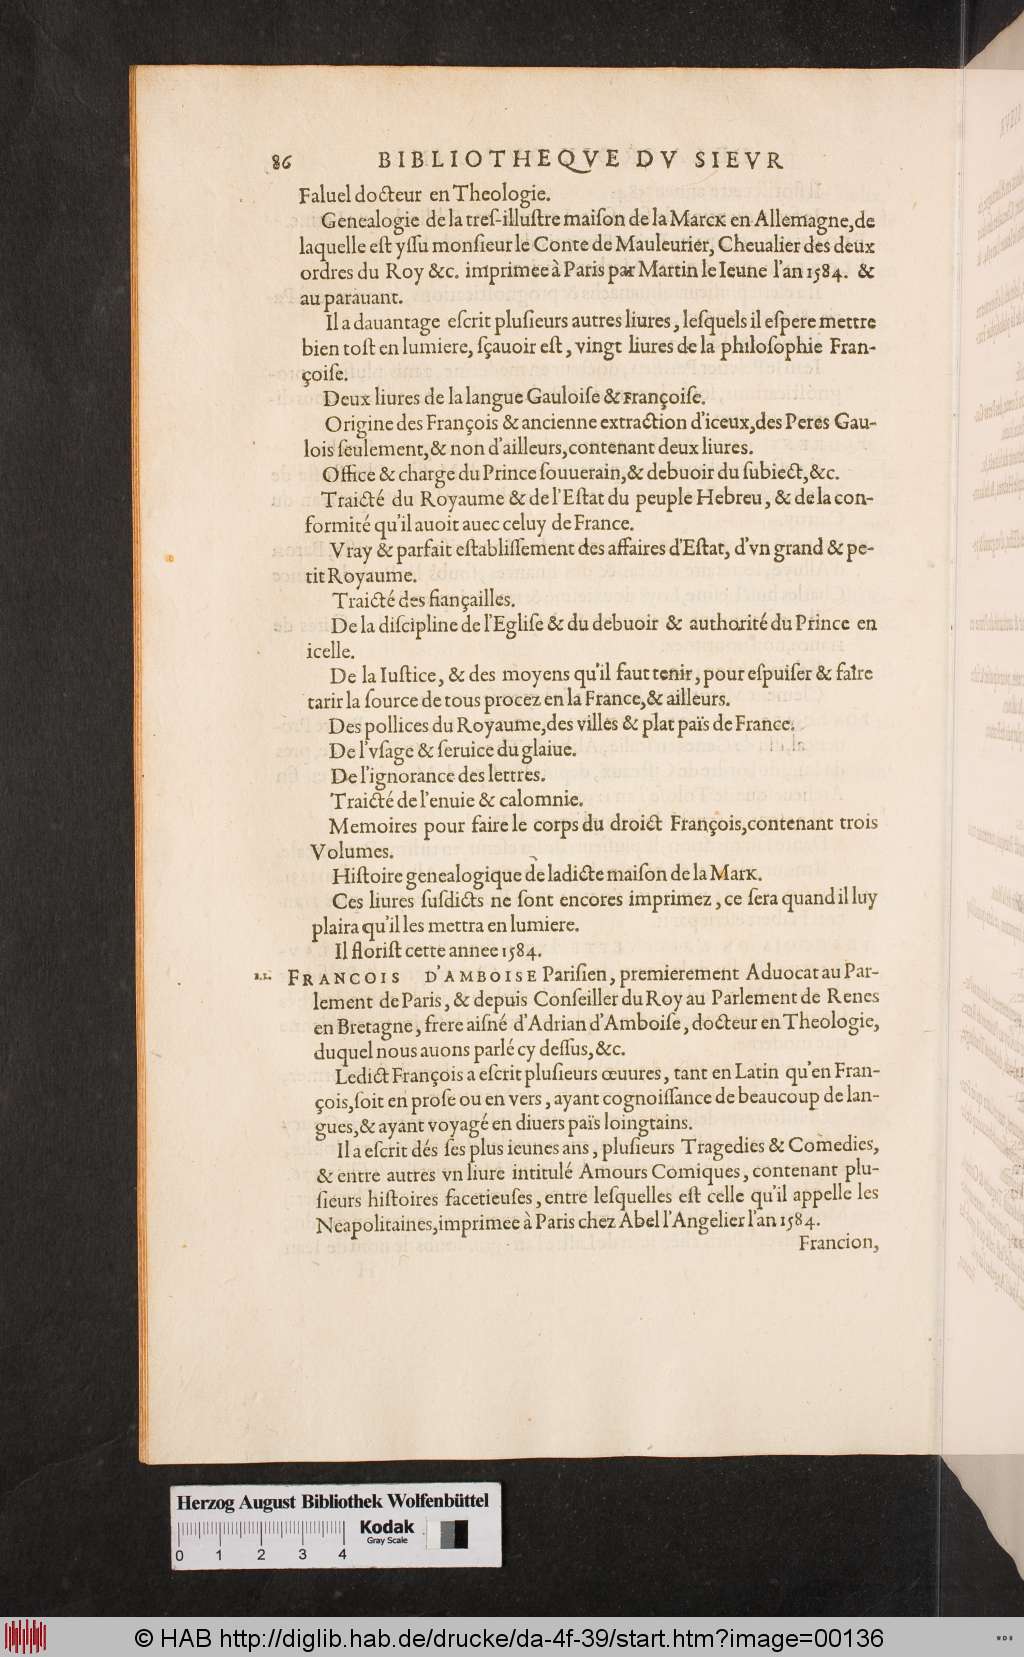 86 BIBLIOTHEQVE DV SIEVR
Faluel docteur en Theologie.
Genealogie de la treſ-illuſtre maiſon de la Marck en Allemagne, de
laquelle eſt yſſu monſieur le Conte de Mauleurier, Cheualier des deux
ordres du Roy &c. imprimee à Paris par Martin le Ieune l'an 1584. &
au parauant.
Il a dauantage eſcrit pluſieurs autres liures, leſquels il eſpere mettre
bien toſt en lumiere, ſçauoir eſt, vingt liures de la philoſophie Fran-
çoiſe.
Deux liures de la langue Gauloiſe & Françoiſe.
Origine des François & ancienne extraction d'iceux, des Peres Gau-
lois ſeulement, & non d'ailleurs, contenant deux liures.
Office & charge du Prince ſouuerain, & debuoir du ſubiect, &c.
Traicté du Royaume & de l'Eſtat du peuple Hebreu, & de la con-
formité qu'il auoit auec celuy de France.
Vray & parfait eſtabliſſement des affaires d'Eſtat, d'vn grand & pe-
tit Royaume.
Traicté des fiançailles.
De la diſcipline de l'Egliſe & du debuoir & authorité du Prince en
icelle.
De la Iuſtice, & des moyens qu'il faut tenir, pour eſpuiſer & faire
tarir la ſource de tous procez en la France, & ailleurs.
Des pollices du Royaume, des villes & plat païs de France.
De l'vſage & ſeruice du glaiue.
De l'ignorance des lettres.
Traicté de l'enuie & calomnie.
Memoires pour faire le corps du droict François, contenant trois
Volumes.
Hiſtoire genealogique de ladicte maiſon de la Mark.
Ces liures ſuſdicts ne ſont encores imprimez, ce ſera quand il luy
plaira qu'il les mettra en lumiere.
Il floriſt cette annee 1584.
FRANCOIS D'AMBOISE Pariſien, premierement Aduocat au Par-
lement de Paris, & depuis Conſeiller du Roy au Parlement de Renes
en Bretagne, frere aiſné d'Adrian d'Amboiſe, docteur en Theologie,
duquel nous auons parlé cy deſſus, &c.
Ledict François a eſcrit pluſieurs œuures, tant en Latin qu'en Fran-
çois, ſoit en proſe ou en vers, ayant cognoiſſance de beaucoup de lan-
gues, & ayant voyagé en diuers païs loingtains.
Il a eſcrit dés ſes plus ieunes ans, pluſieurs Tragedies & Comedies,
& entre autres vn liure intitulé Amours Comiques, contenant plu-
ſieurs hiſtoires facetieuſes, entre leſquelles eſt celle qu'il appelle les
Neapolitaines, imprimee à Paris chez Abel l'Angelier l'an 1584.
Francion,
Herzog August Bibliothek Wolfenbüttel
Kodak
Gray Scale
0 1 2 3 4
© HAB http://diglib.hab.de/drucke/da-4f-39/start.htm?image=00136